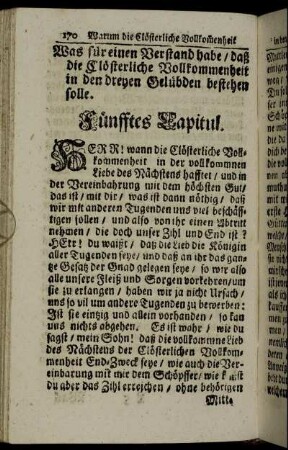 170 Warum die Clösterliche Vollkom̃enheit
Was für einen Verstand habe / daß
die Clösterliche Vollkommenheit
in den dreyen Gelübden bestehen
solle.
Fünfftes Capitul.
HERR! wann die Clösterliche Voll-
kommenheit in der vollkommnen
Liebe des Nächstens hafftet / und in
der Vereinbahrung mit dem höchsten Gut /
das ist / mit dir / was ist dann nöthig / daß
wir mit anderen Tugenden uns viel beschäff-
tigen sollen / und also von ihr einen Abtritt
nehmen / die doch unser Zihl und End ist?
HErr! du waißt / daß die Lieb die Königin
aller Tugenden seye / und daß an ihr das gan-
tze Gesatz der Gnad gelegen seye / so wir also
alle unsere Fleiß und Sorgen vorkehren / um
sie zu erlangen / haben wir ja nicht Ursach /
uns so vil um andere Tugenden zu bewerben:
Ist sie eintzig und allein vorhanden / so kan
uns nichts abgehen. Es ist wahr / wie du
sagst / mein Sohn! daß die vollkommne Lieb
des Nächstens der Clösterlichen Vollkom-
menheit End-Zweck seye / wie auch die Ver-
einbarung mit mir dem Schöpffer / wie
du aber das Zihl erreichen / ohne behörigen
Mitt-